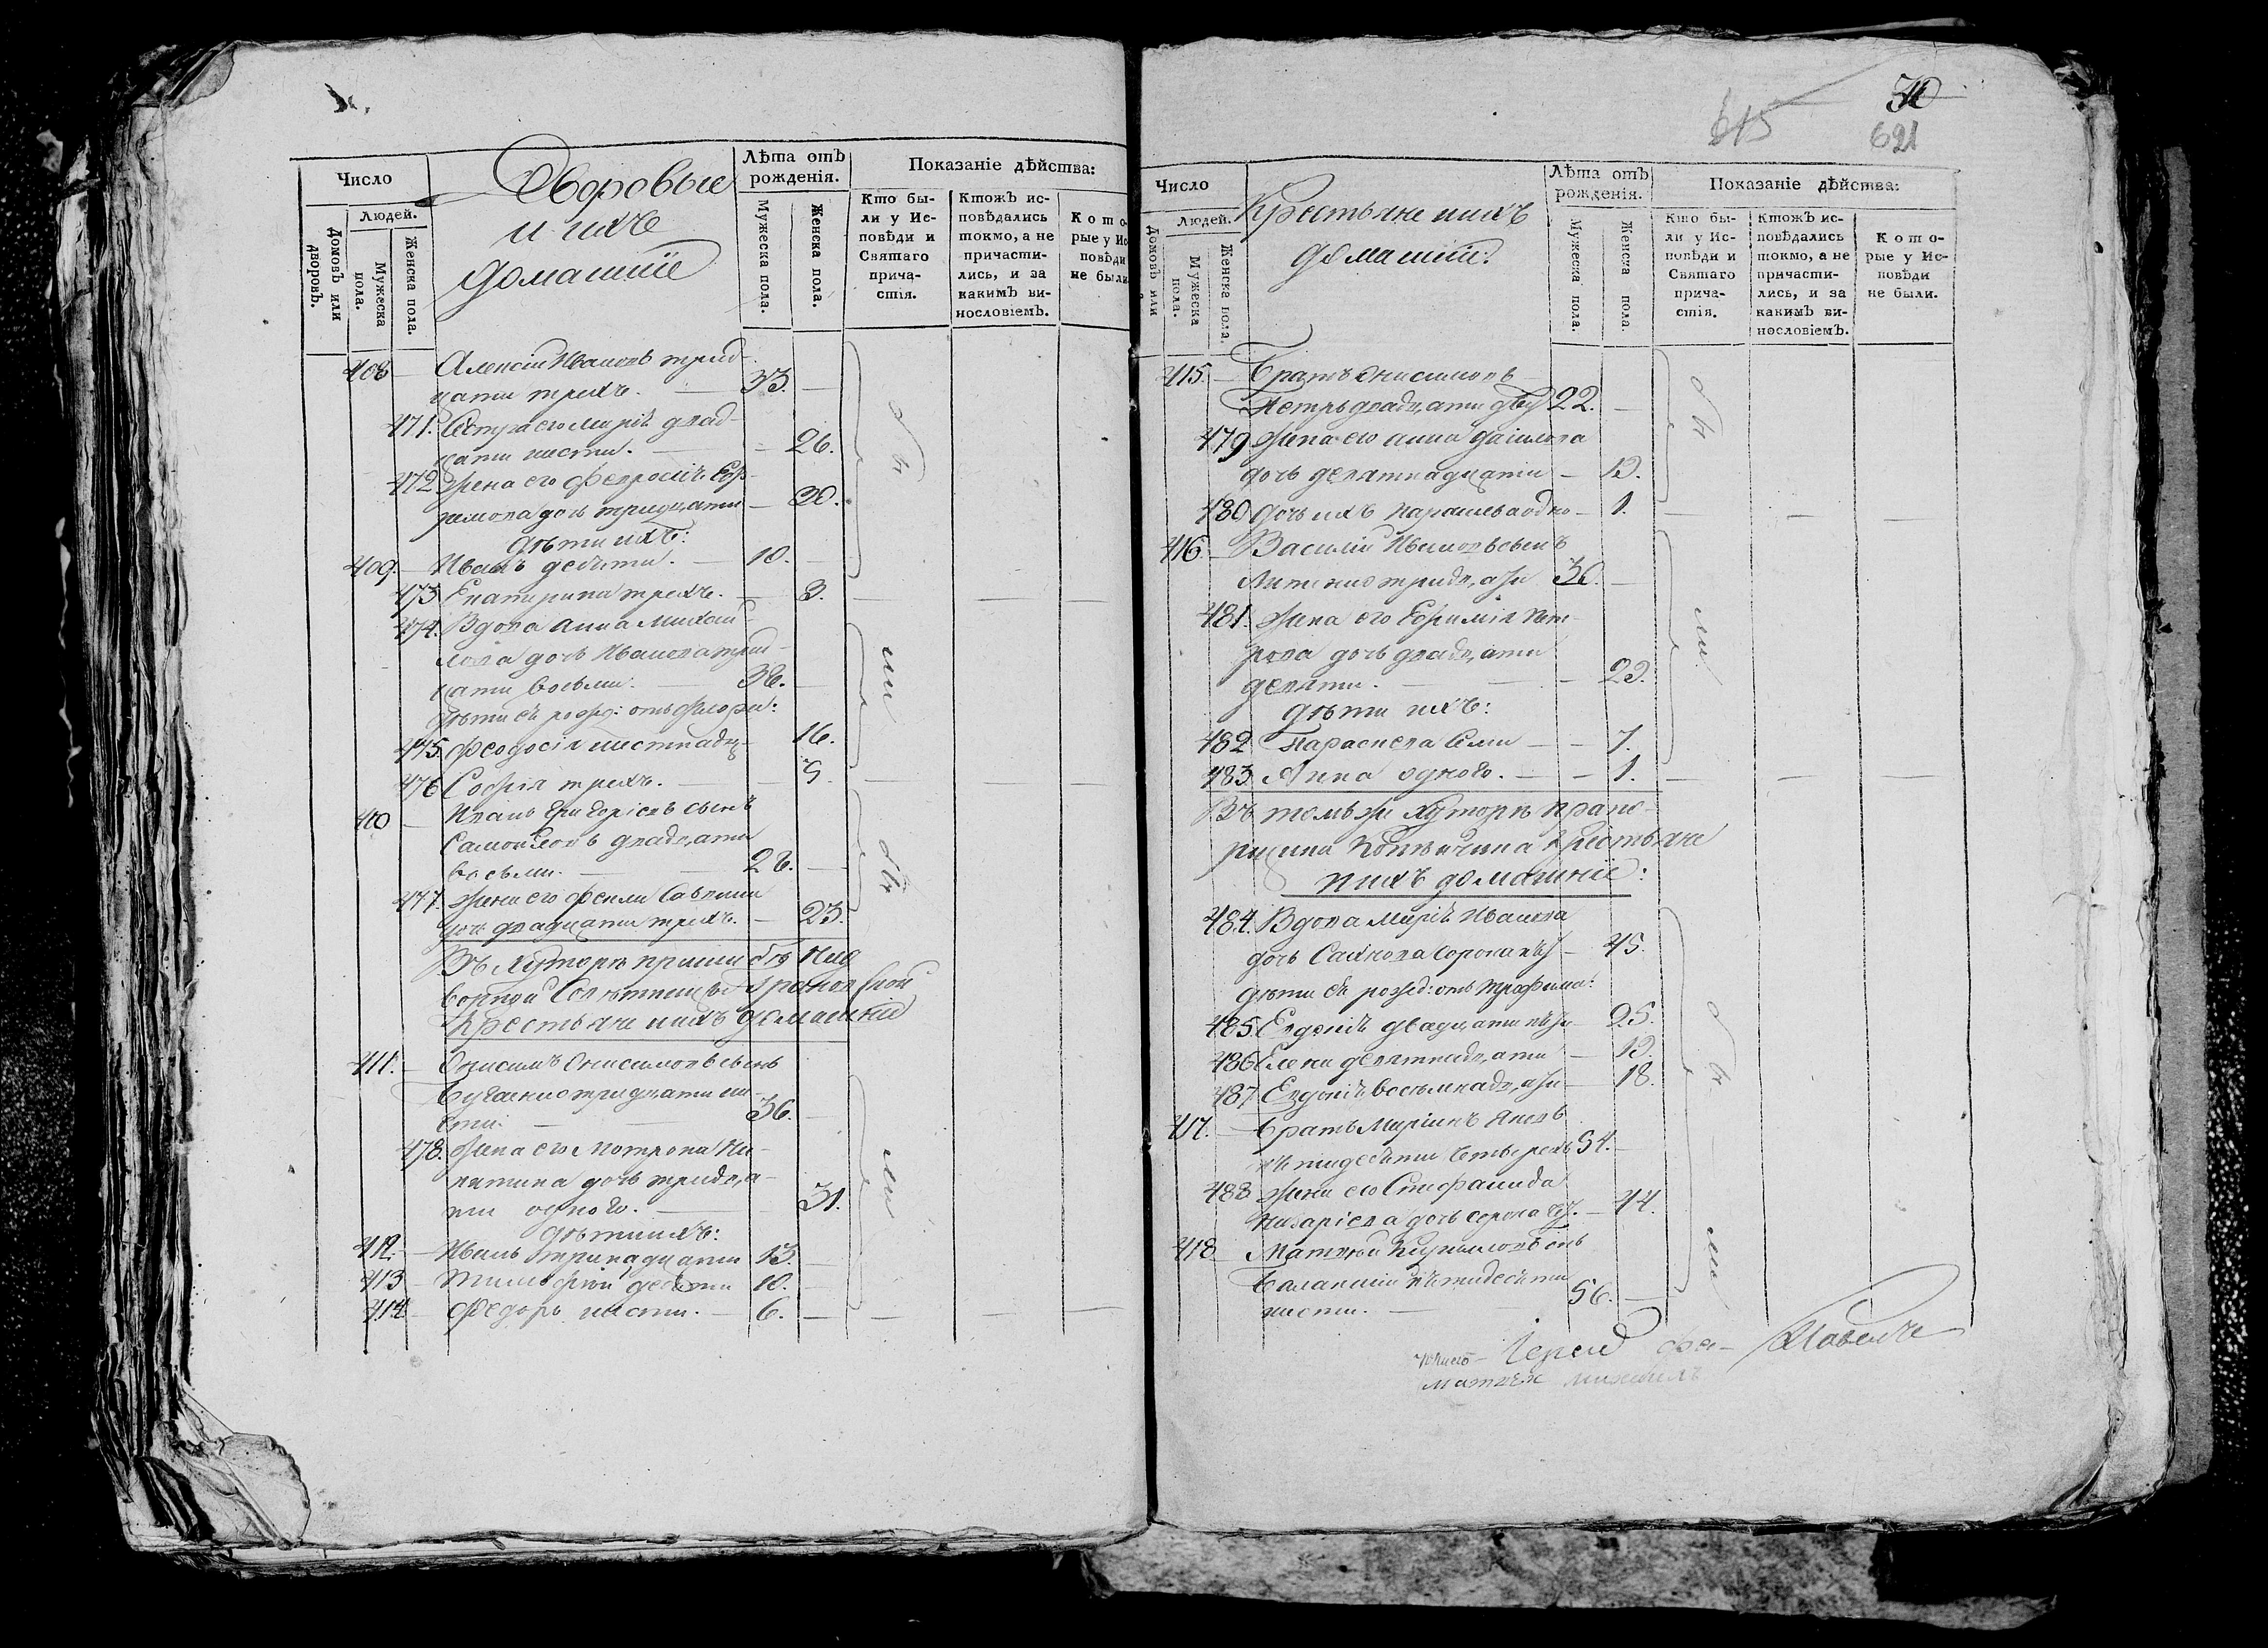 Число
Людей.
Домовъ или дворовъ.
Мужеска пола.
Женска пола.
Дворовые
и ихъ
домашніе
Лѣта отъ рожденія.
Мужеска пола.
Женска пола.
Показаніе дѣйства:
Кто бы-
ли у Ис-
повѣди и
Святаго
прича-
стія.
Ктожъ ис-
повѣдались
токмо, а не
причасти-
лись, и за
какимъ ви-
нословіемъ.
Кото-
рые у Ис
повѣди
не были
408 — Алексій Ивановъ трид-
цати трехъ. — 33. —
471. Сестра его Марія двад-
цати шести. — — 26.
472 Жена его Феврослія Еф-
ремова дочь тридцати — 30.
дѣти ихъ:
409. — Иванъ десяти. — 10. —
473 Екатерина трехъ. — 3.
474. Вдова Анна Михай-
лова дочь Иванова трид-
цати восьми. — 38. —
дѣти ея рожд: отъ
475. Феодосія шестнадц- 16.
476 Софія трехъ. — 3.
410 — Иванъ Григоріевъ сынъ
Самойловъ двадцати
восьми. — 28. —
477. Жена его Фекла Саввина
дочь двадцати трехъ. — 23.
Въ Хуторѣ
ворной Совѣтницы
Крестьяне и ихъ домашніе
411. — Онисимъ Онисимовъ сынъ
тридцати ше-
сти. — 36. —
478. Жена его Мотрона Ни-
китина дочь тридца-
ти одного. — 31.
дѣти ихъ:
412. — Иванъ тринадцати 13. —
413 — Тимофей десяти 10. —
414 — Федоръ шести. — 6. —
обы
ли
обы
ли
615
70
621
Число
Людей.
Домовъ или
Мужеска пола.
Женска пола
Крестьяне и ихъ
домашніе:
Лѣта отъ
рожденія.
Мужеска пола.
Женска пола.
Показаніе дѣйства:
Кто бы-
ли у Ис-
повѣди и
Святаго
прича-
стія.
Ктожъ ис-
повѣдались
токмо, а не
причасти-
лись, и за
какимъ ви-
нословіемъ.
Кото-
рые у Ис-
повѣди
не были.
415. — Братъ Онисимовъ
Петръ двадцати двухъ 22. —
479 Жена его Анна Данилова
дочь девятнадцати — 19.
480 Дочь ихъ Параскева одно — 1.
416. — Василій Ивановъ сынъ
тридцати 30. —
481. Жена его Евфимія Пет-
рова дочь двадцати
девяти. — — 29.
дѣти ихъ:
482 Параскева семи — — 7.
483 Анна одного. — — 1.
Въ томъ же Хуторѣ прапо-
рщика крестьяне
и ихъ домашніе:
484. Вдова Марія Иванова
дочь Сахнова сорока пяти — 45.
дѣти ея рожд: отъ Трофима:
485. Евдокія двадцати пяти — 25.
486 Елена девятнадцати — 19.
487 Евдокія восьмнадцати — 18.
417. — Братъ Маріинъ Яковъ
пятидесяти четырехъ 54. —
488 Жена его Стефанида
Назаріева дочь сорока чет. — 44.
418 Матвей сынъ
пятидесяти
шести. — 56. —
обы
ли
обы
ли